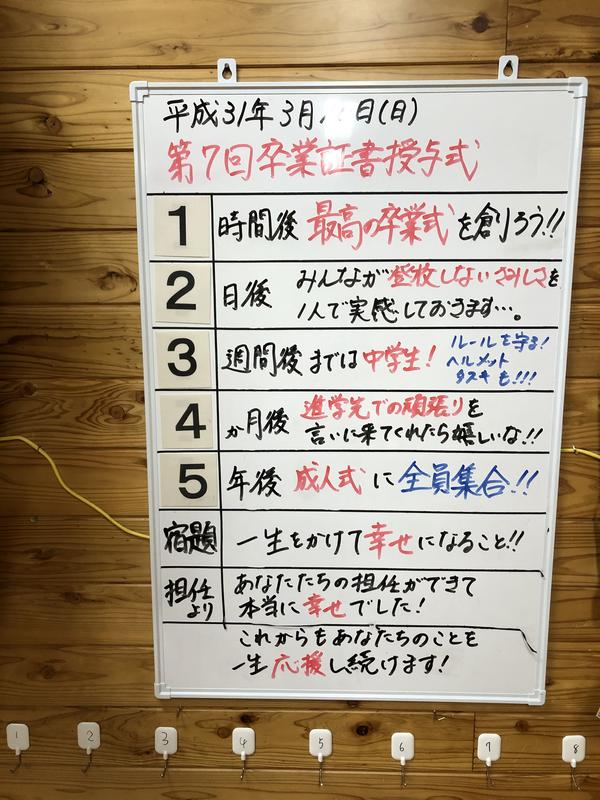 平成31年3月 日(日)
第7回卒業証書授与式
1 時間後 最高の卒業式を創ろう!!
2 日後 みんなが登校しないさみしさを
1人で実感しておきます…。
3 週間後 までは中学生! ルールを守る!
ヘルメット
タスキも!!!
4 か月後 進学先での頑張りを
言いに来てくれたら嬉しいな!!
5 年後 成人式に全員集合!!
宿題 一生をかけて幸せになること!!
担任より あなたたちの担任ができて
本当に幸せでした!
これからもあなたちのことを
一生応援し続けます!
1 2 3 4 5 6 7 8